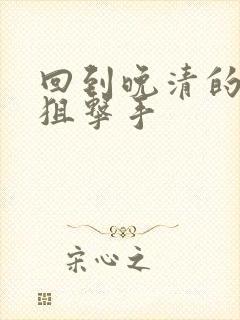 回到晚清的
狙撃手
宋心之